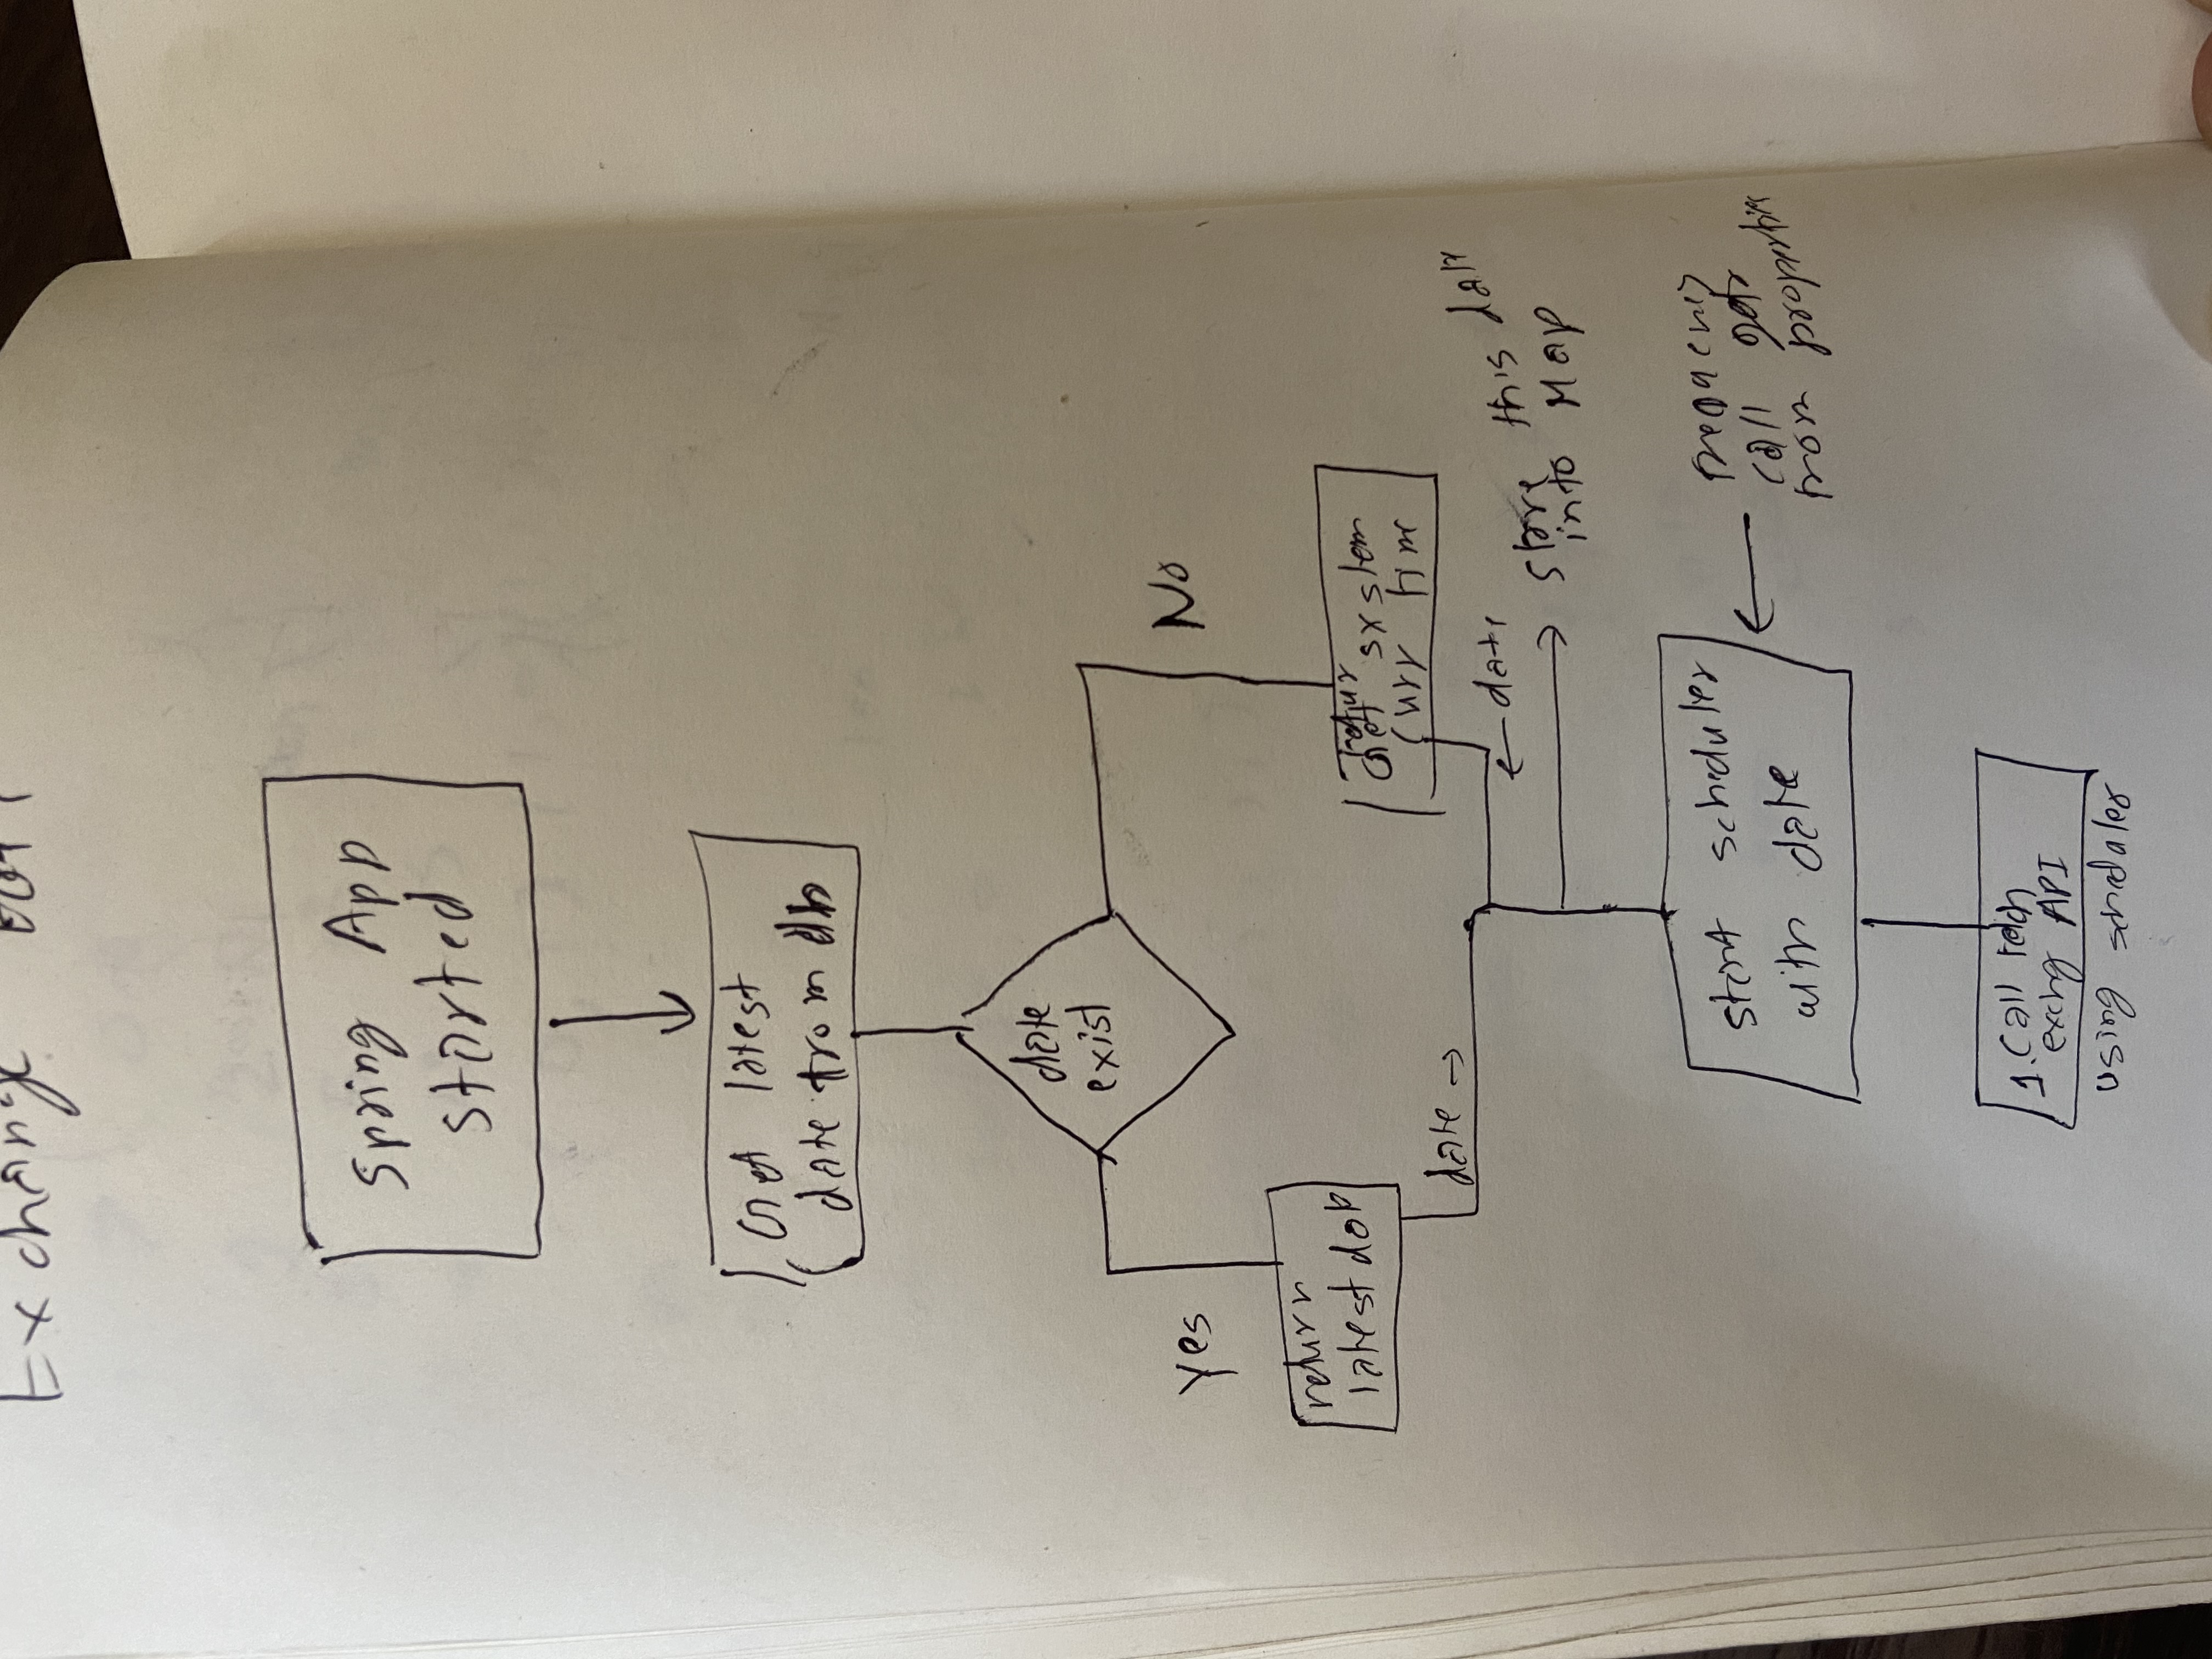 Exchange
Spring App
started
Get latest
date from db
date
exist
Yes
No
return
latest date
Get system
curr time
date →
← date
store this date
into Map
start scheduler
with date
frequency
call gets
from properties
1. Call fetch
exchg API
using scheduler